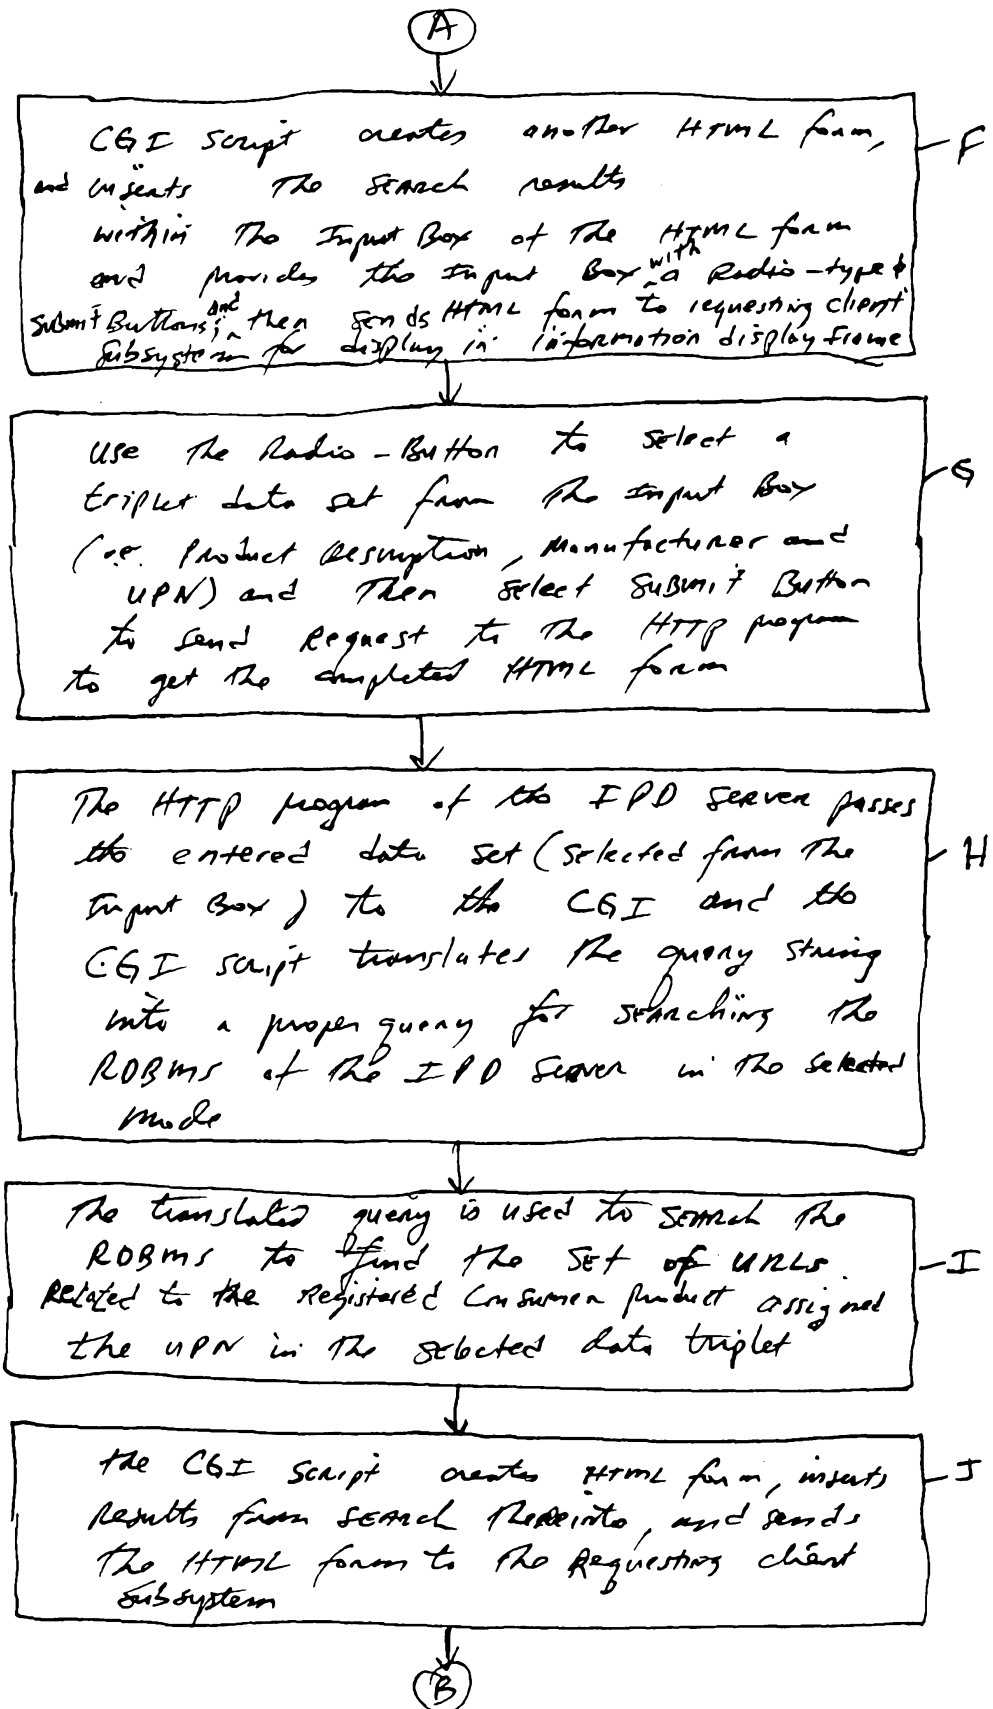 A
CGI Script creates another HTML form,
F
and inserts the search results
within the Input Box of the HTML form
and provides the Input Box with a Radio-type &
Submit Buttons; and then sends HTML form to requesting client
subsystem for display in information display frame
Use the Radio-Button to select a
triplet data set from the Input Box
G
(i.e. Product Description, Manufacturer and
UPN) and then select Submit Button
to send Request to the HTTP program
to get the completed HTML form
The HTTP program of the IPD Server passes
the entered data set (selected from the
H
Input Box) to the CGI and the
CGI script translates the query string
into a proper query for searching the
RDBMS of the IPD Server in the selected
mode
The translated query is used to search the
RDBMS to find the set of URLs
I
Related to the Registered Consumer product assigned
the UPN in the selected data triplet
the CGI Script creates HTML form, inserts
J
Results from search thereinto, and sends
the HTML form to the Requesting client
subsystem
B